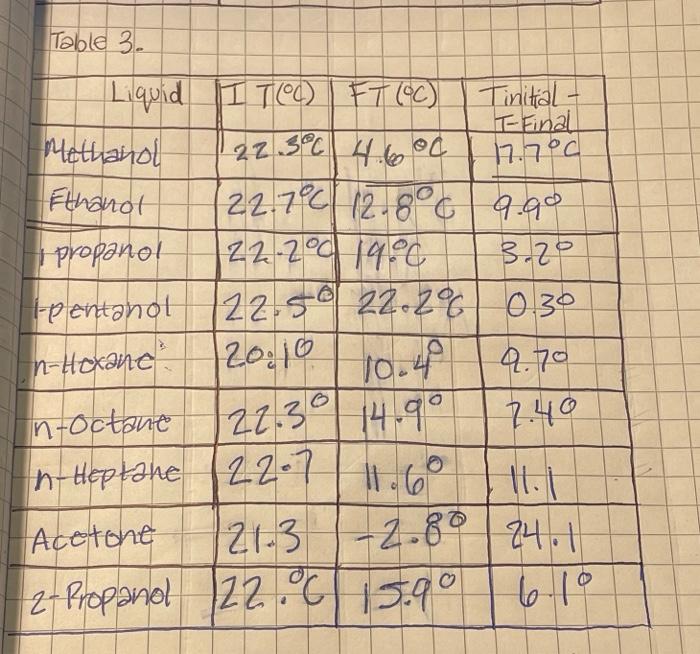 Table 3.
Liquid I T(°C) FT (°C) Tinitial -
T-Final
Methanol 22.3°C 4.6°C 17.7°C
Ethanol 22.7°C 12.8°C 9.9°
1 propanol 22.2°C 19.°C 3.2°
1-pentanol 22.5° 22.2°C 0.3°
n-Hexane 20.1° 10.4° 9.7°
n-Octane 22.3° 14.9° 7.4°
n-Heptane 22.7 11.6° 11.1
Acetone 21.3 -2.8° 24.1
2-Propanol 22.°C 15.9° 6.1°